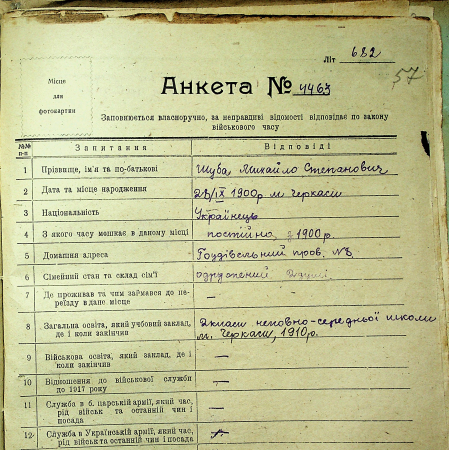 Літ 682
57
Місце
для
фотокартки
Анкета № 4463
Заповнюється власноручно, за неправдиві відомості відповідає по закону
військового часу
№№ п-п Запитання Відповіді
1 Прізвище, ім'я та по-батькові Шуба Михайло Степанович
2 Дата та місце народження /IX 1900р м Черкаси
3 Національність Українець
4 З якого часу мешкає в даному місці постійно, з 1900 р.
5 Домашня адреса пров. №8
6 Сімейний стан та склад сім'ї одружений 2 душі
7 Де проживав та чим займався до пе-
реїзду в дане місце —
8 Загальна освіта, який учбовий заклад,
де і коли закінчив 2 класи неповно-середньої школи
м. Черкаси, 1910 р.
9 Військова освіта, який заклад, де і
коли закінчив —
10 Відношення до військової служби
до 1917 року —
11 Служба в б. царській армії, який час,
рід військ та останній чин і
посада —
12 Служба в Українській армії, який час,
рід військ та останній чин і посада —